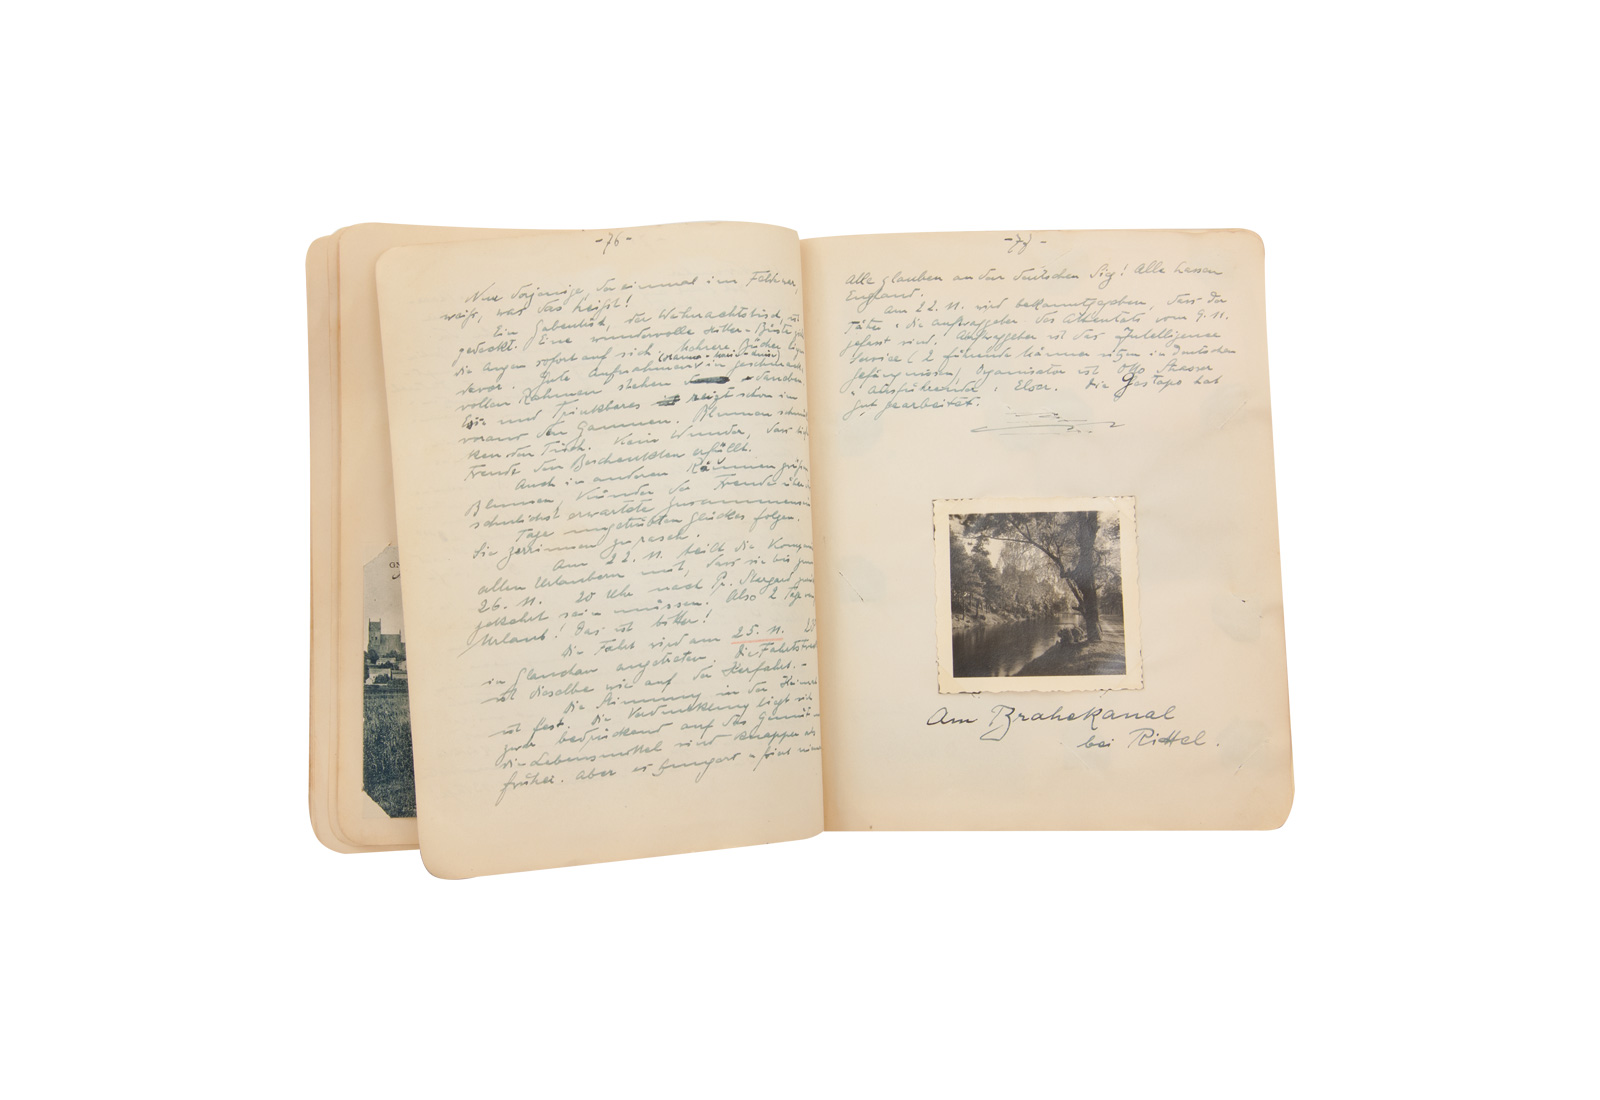 - 76 -
Nur derjenige, der einmal im Feld war,
weiß, was das heißt!
Ein Gabentisch, der Weihnachtstisch, ist
gedeckt. Eine wundervolle Hitler-Büste
die Augen sofort auf sich. Mehrere Bücher liegen
davor. Gute Aufnahmen in geschmack-
vollen Rahmen stehen daneben
und Trinkbares zeigt schon im
voraus den Gaumen. Blumen schmü-
ken den Tisch. Kein Wunder, dass
Freude den Beschenkten erfüllt.
Auch in anderen Räumen grüßen
Blumen, Künder der Freude über
sehnlichst erwartete Zusammensein
Tage ungetrübten Glückes folgen.
Sie zerrinnen zu rasch.
Am 22. 11. teilt die
allen Urlaubern mit, dass sie bis zum
26. 11. 20 Uhr nach Pr. Stargard
gekehrt sein müssen. Also 2 Tage
Urlaub! Das ist bitter!
Die Fahrt wird am 25. 11.
in Glauchau angetreten. Die Fahrtstrecke
ist dieselbe wie auf der Herfahrt. -
Die Stimmung in der Heimat
ist fest. Die Verdunklung liegt
zwar bedrückend auf das Gemüt -
die Lebensmittel sind knapper als
früher. Aber es hungert u. friert niemand
- 77 -
Alle glauben an den deutschen Sieg! Alle hassen
England.
Am 22. 11. wird bekanntgegeben, dass der
Täter u. die Auftraggeber des Attentats vom 9. 11.
gefasst sind. Auftraggeber ist das Intelligence
Service (2 führende Männer sitzen in deutschen
Gefängnissen), Organisator ist Otto Strasser
u. Ausführender: Elser. Die Gestapo hat
gut gearbeitet.
Am Brahekanal
bei Rittel.